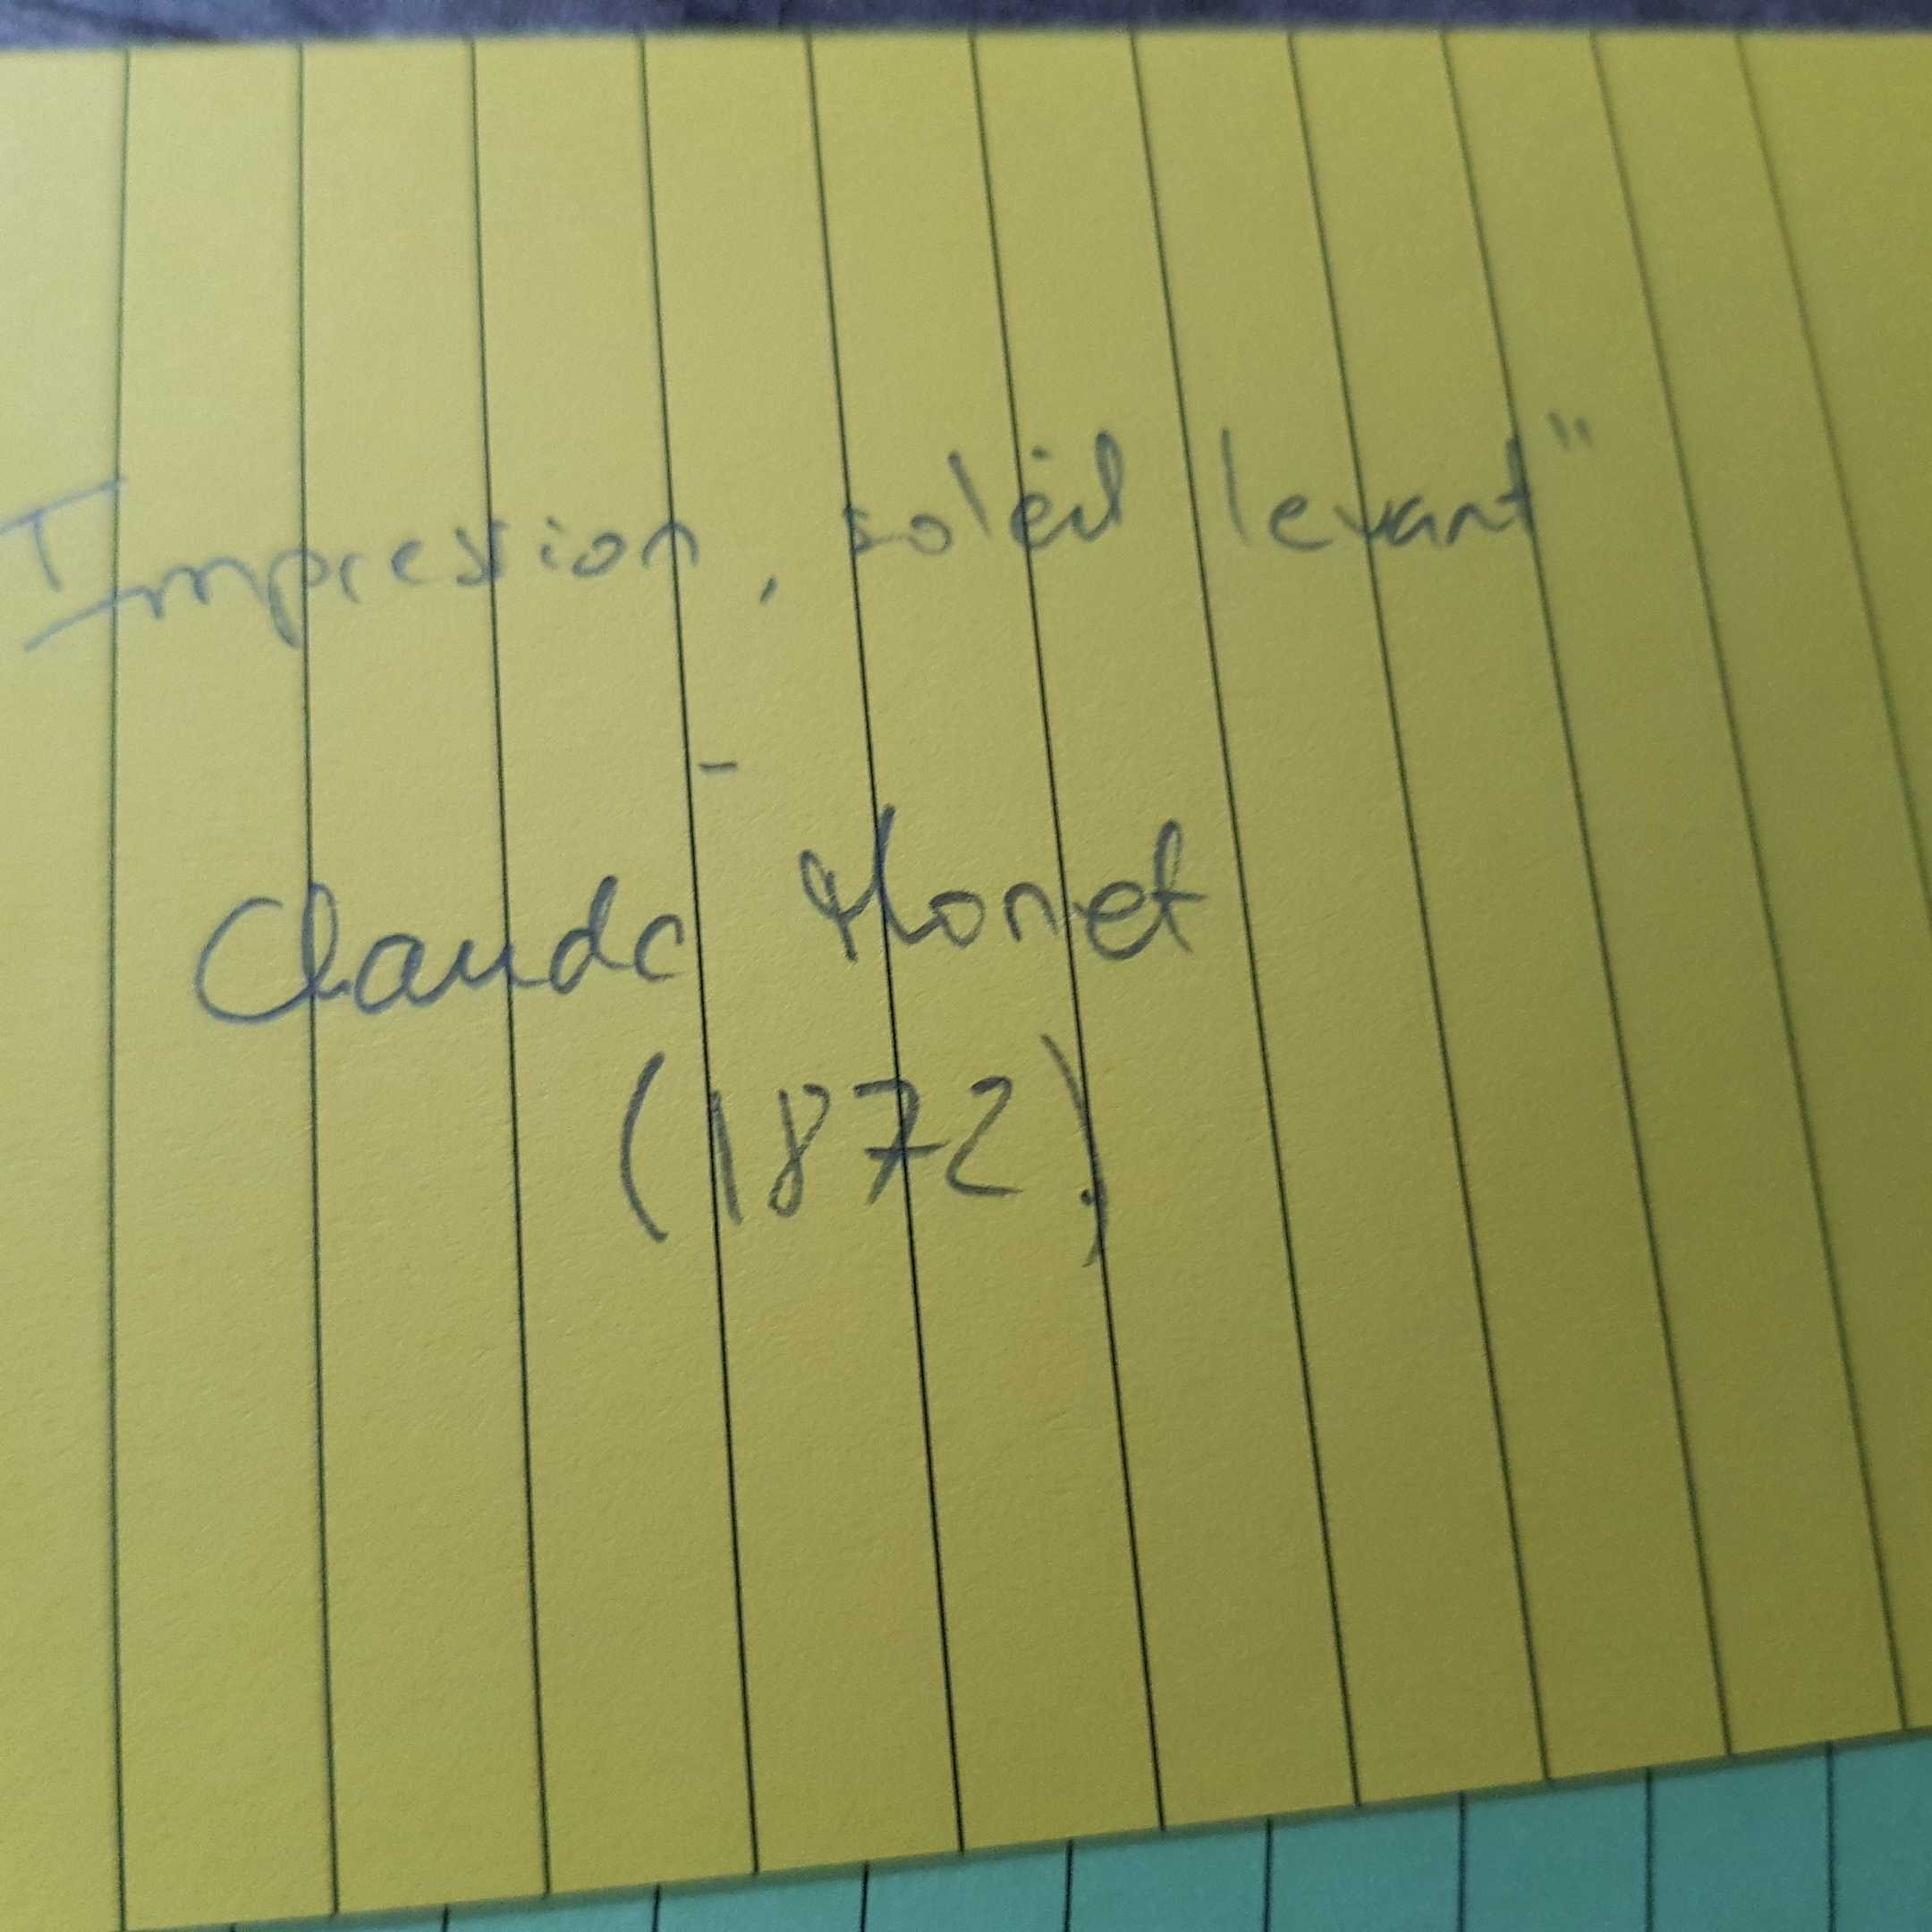 Impression, soleil levant"
-
Claude Monet
(1872)